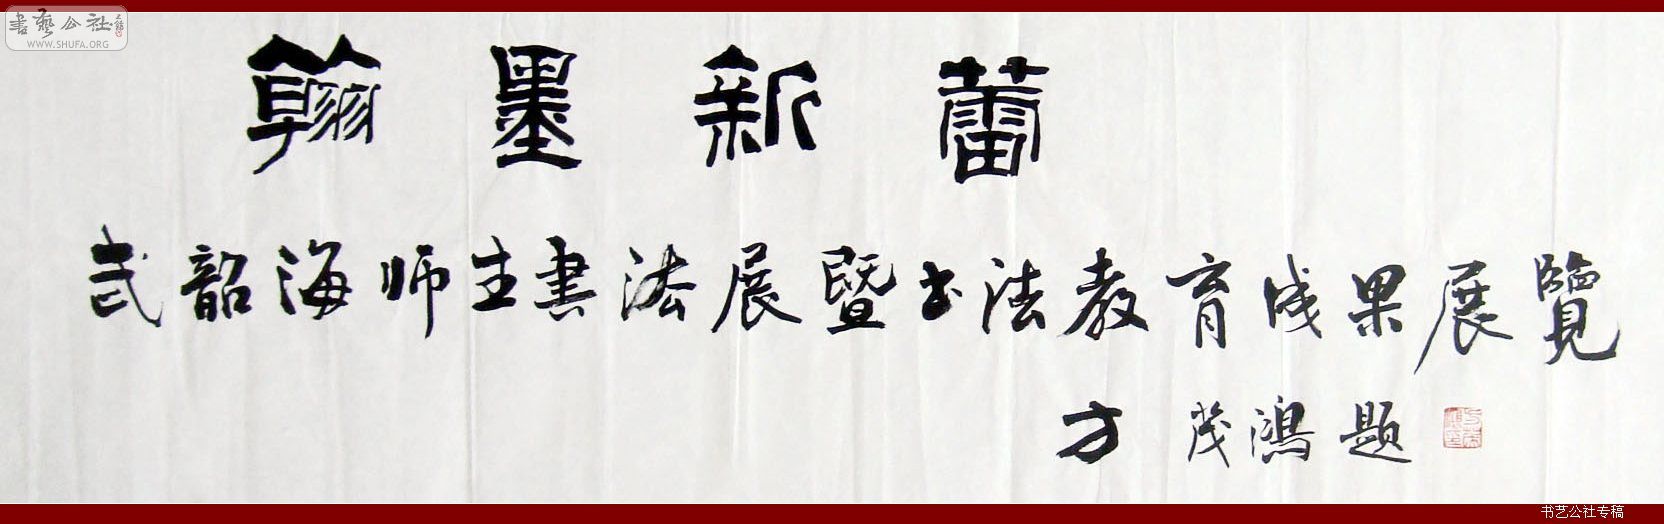 書藝公社
WWW.SHUFA.ORG
翰墨新蕾
武韶海师生書法展暨书法教育成果展覽
方茂鴻題
书艺公社专稿